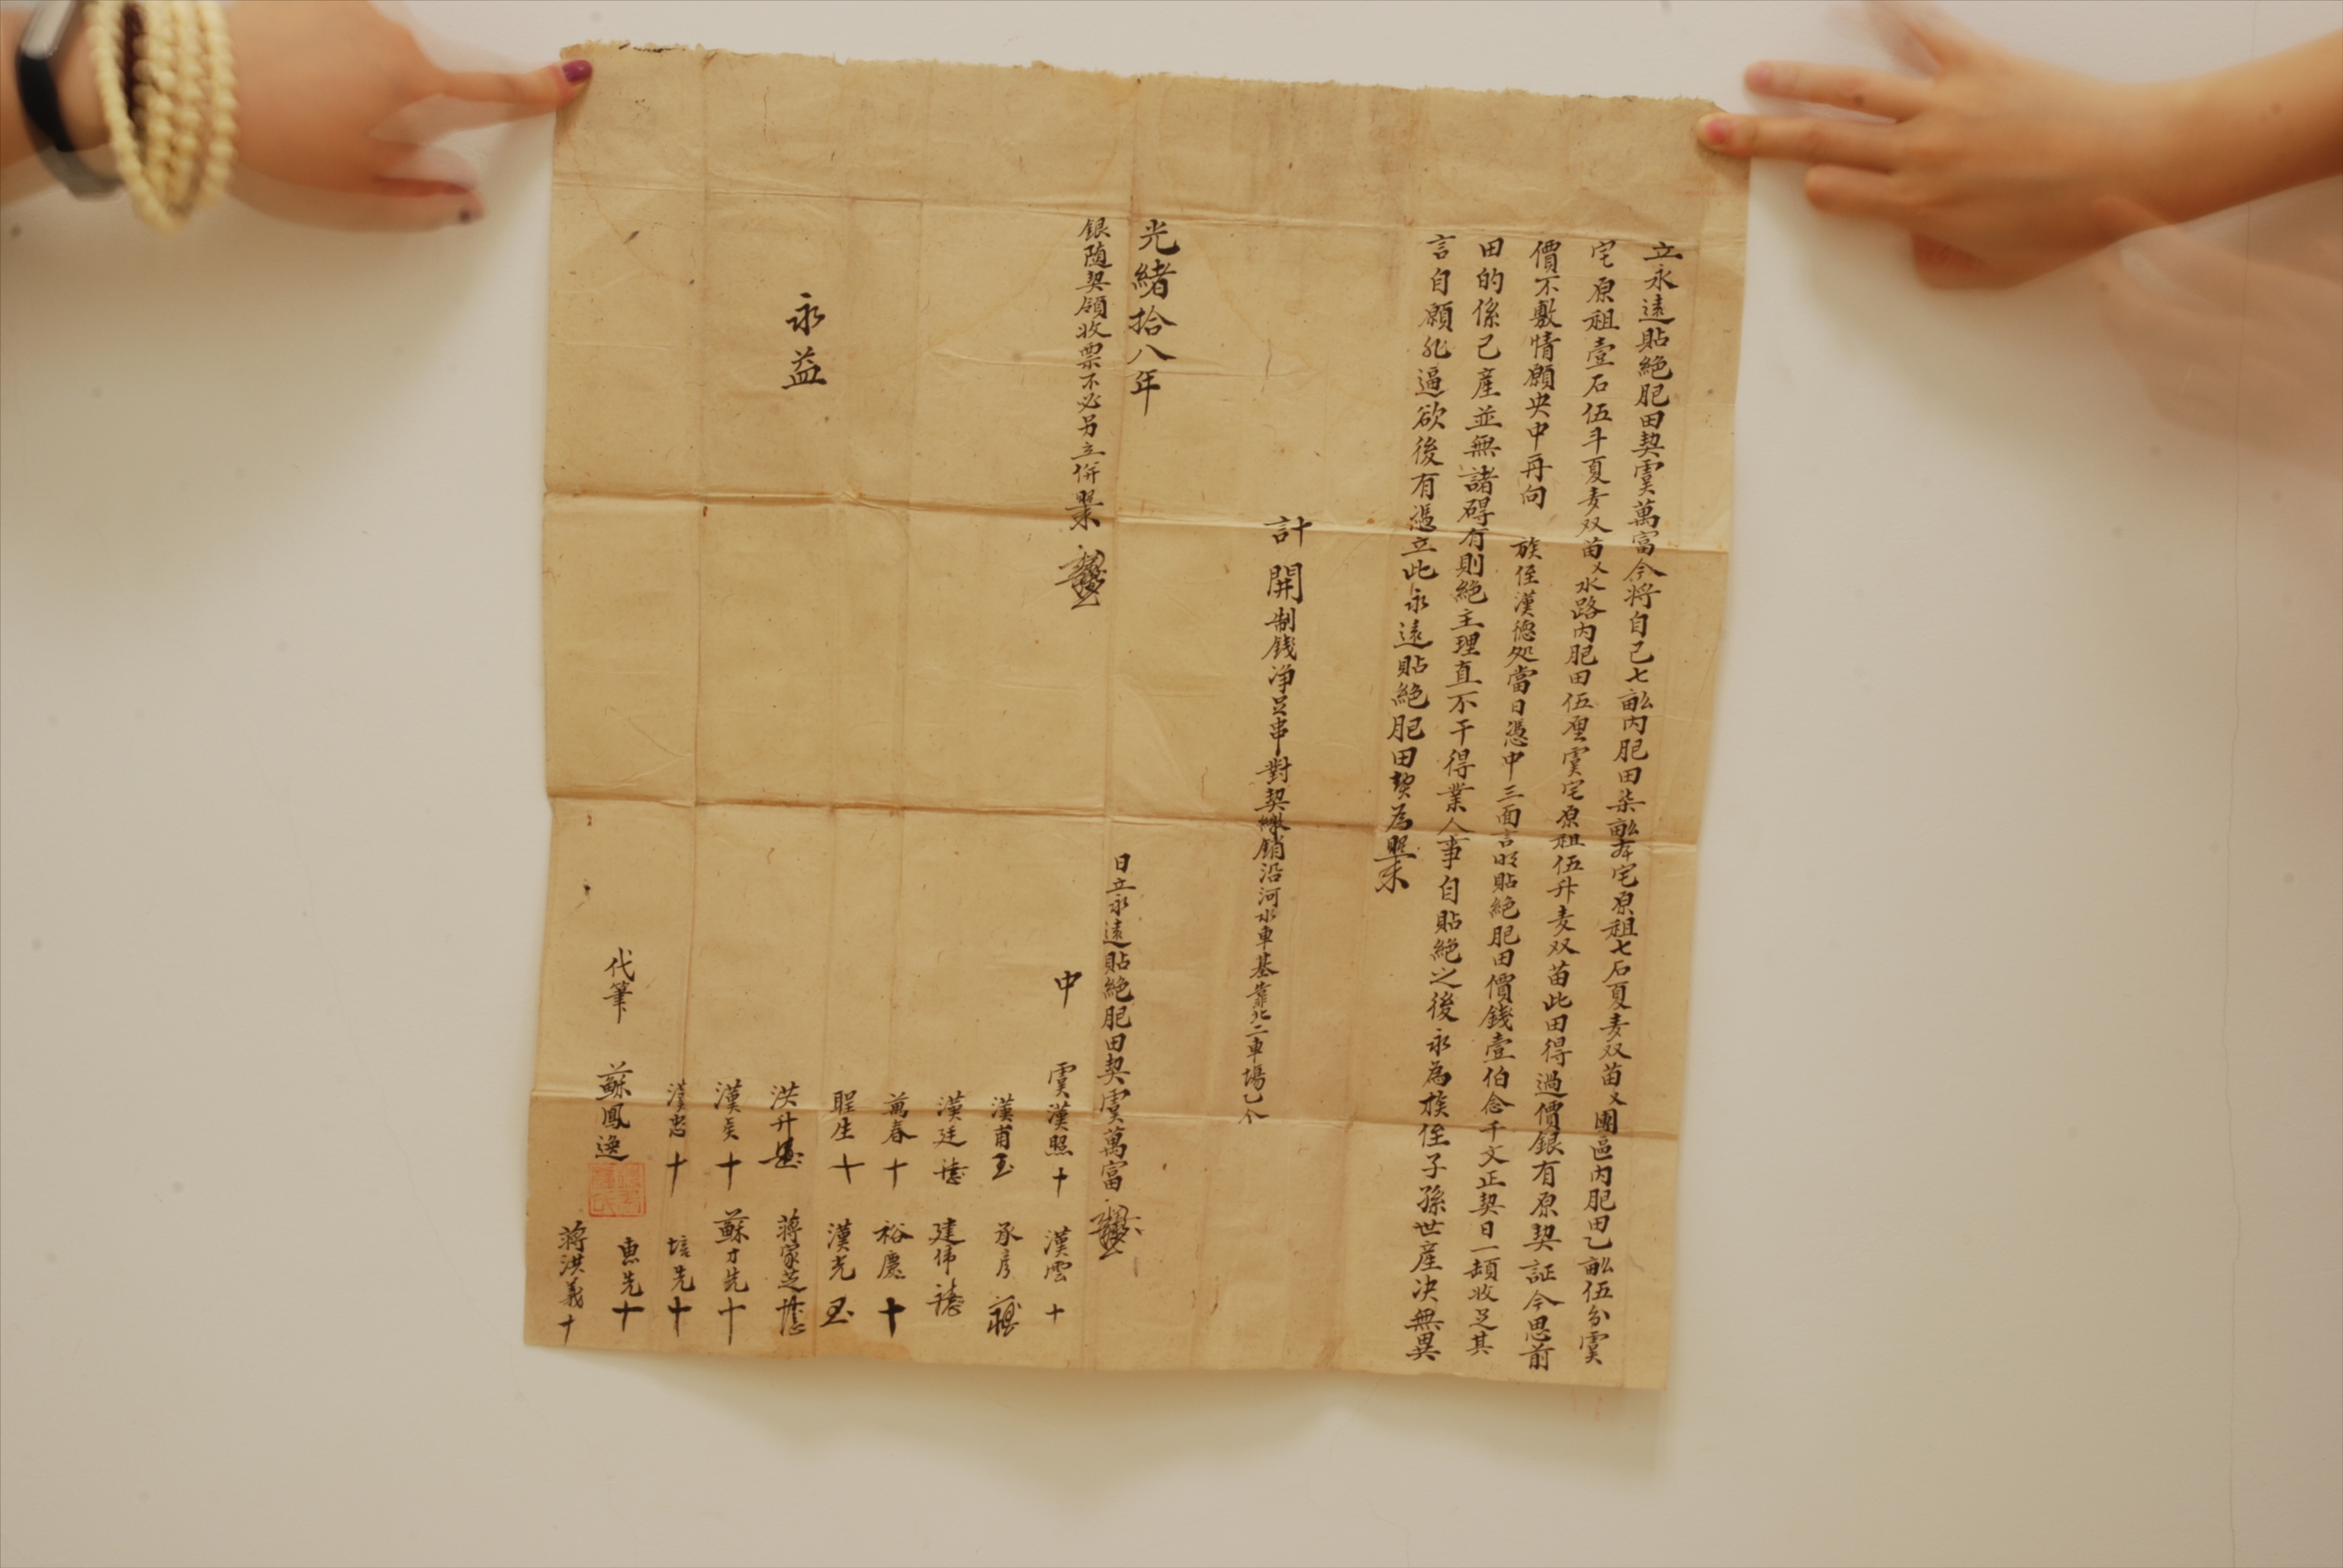 立永遠貼絕肥田契虞萬富今將自己七畝內肥田柒畝奔宅原租七石夏麦双苗又團區內肥田乙畝伍分虞
宅原租壹石伍斗夏麦双苗又水路內肥田伍厘虞宅原租伍升麦双苗此田得過價銀有原契証今思前
價不敷情願央中再向 族侄漢德处當日憑中三面言明貼絕肥田價錢壹伯念千文正契日一頓收足其
田的係己產並無諸碍有則絕主理直不干得業人事自貼絕之後永為族侄子孫世產决無異
言自願非逼欲後有憑立此永遠貼絕肥田契為照
計開制錢净足串對契繳銷沿河水車基靠北二車塲乙个
光緒拾八年 日立永遠貼絕肥田契虞萬富
銀隨契領收票不必另立併照
中 虞漢照十 漢雲十
漢甫 承彦
漢廷 建偉
萬春十 裕慶十
永益
聖生十 漢光
洪升 蔣家芝
漢 十 蘇才先十
漢忠十 培先十
代筆 蘇鳳逸 惠先十
蔣洪義十